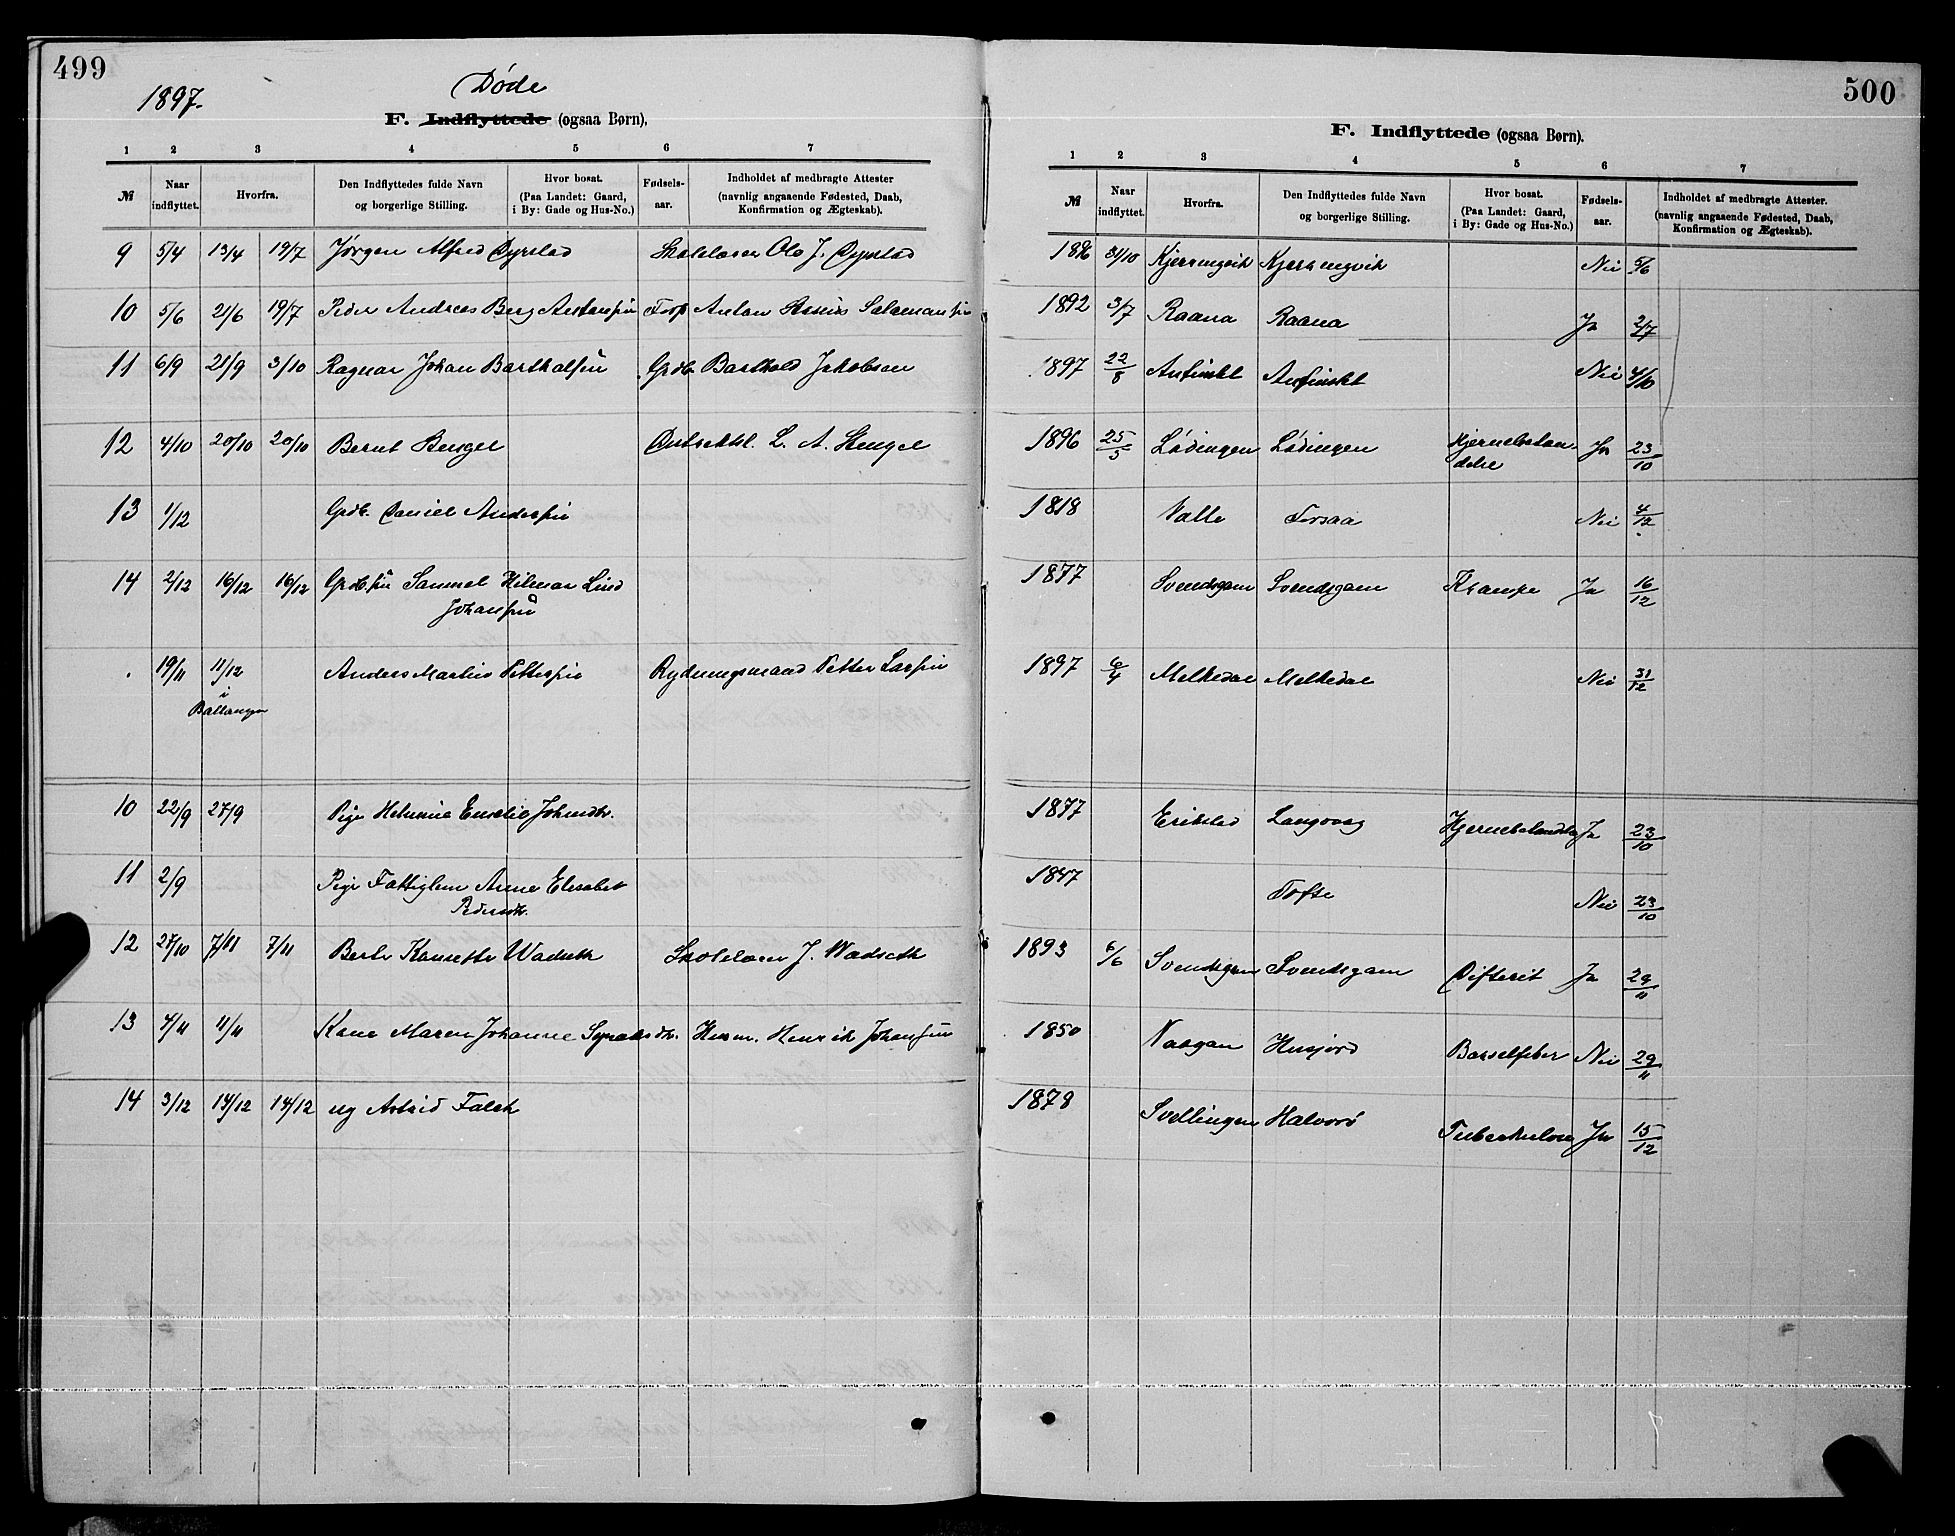 499
1897.
Døde
F. Indflyttede (ogsaa Børn),
1 2 3 4 5 6 7
№ Naar indflyttet. Hvorfra. Den Indflyttedes fulde Navn og borgerlige Stilling. Hvor bosat. (Paa Landet: Gaard, i By: Gade og Hus-No.) Fødsels-aar. Indholdet af medbragte Attester (navnlig angaaende Fødested, Daab, Konfirmation og Ægteskab).
9 5/4 13/4 19/7 Jørgen Alfred Dyrstad Skolelærer Ole J. Dyrstad
10 5/6 21/6 19/7 Peder Andreas Berg Antonsen Forp Anton Salamonsen
11 6/9 21/9 3/10 Ragnar Johan Bartholsen Grdb. Barthold Jakobsen
12 4/10 20/10 20/10 Bernt Stengel L. A. Stengel
13 1/12 Grdb. Daniel Andersen
14 2/12 16/12 16/12 Grdb.sn Samuel Hilmar Lind
Johansen
19/11 11/12 Anders Martin Pettersen Rydningsmand Petter Larsen
i
Ballangen
10 22/9 27/9 Pige Emelie Johnsdtr.
11 2/9 Pige Fattiglem Anne Elisabet
Pedersdtr.
12 27/10 7/11 7/11 Berte Wadseth Skolelærer J. Wadseth
13 4/11 11/11 Kone Maren Johanne Husm. Henrik Johansen
14 3/12 14/12 14/12 ug Astrid Falch
500
F. Indflyttede (ogsaa Børn).
1 2 3 4 5 6 7
№ Naar indflyttet. Hvorfra. Den Indflyttedes fulde Navn og borgerlige Stilling. Hvor bosat. (Paa Landet: Gaard, i By: Gade og Hus-No.) Fødsels-aar. Indholdet af medbragte Attester. (navnlig angaaende Fødested, Daab, Konfirmation og Ægteskab).
1896 31/10 Kjerringvik Kjerringvik Nei 5/6
1892 3/7 Raana Raana Ja 2/7
1897 22/8 Nei 4/10
1896 25/5 Lødingen Lødingen Hjernebetæn-
delse Ja 23/10
1818 Valle Forsaa Nei 4/12
1877 Svendsgam Svendsgam Krampe Ja 16/12
1897 6/4 Melkedal Melkedal Nei 31/12
1877 Erikstad Langvaag Ja 23/10
1847 Tofte Nei 23/10
1893 6/6 Svendsgam Svendsgam Difterit Ja 29/11
1850 Vaagan Husjord Barselfeber Nei 29/11
1878 Svellingen Halvarø Tuberkulose Ja 15/12